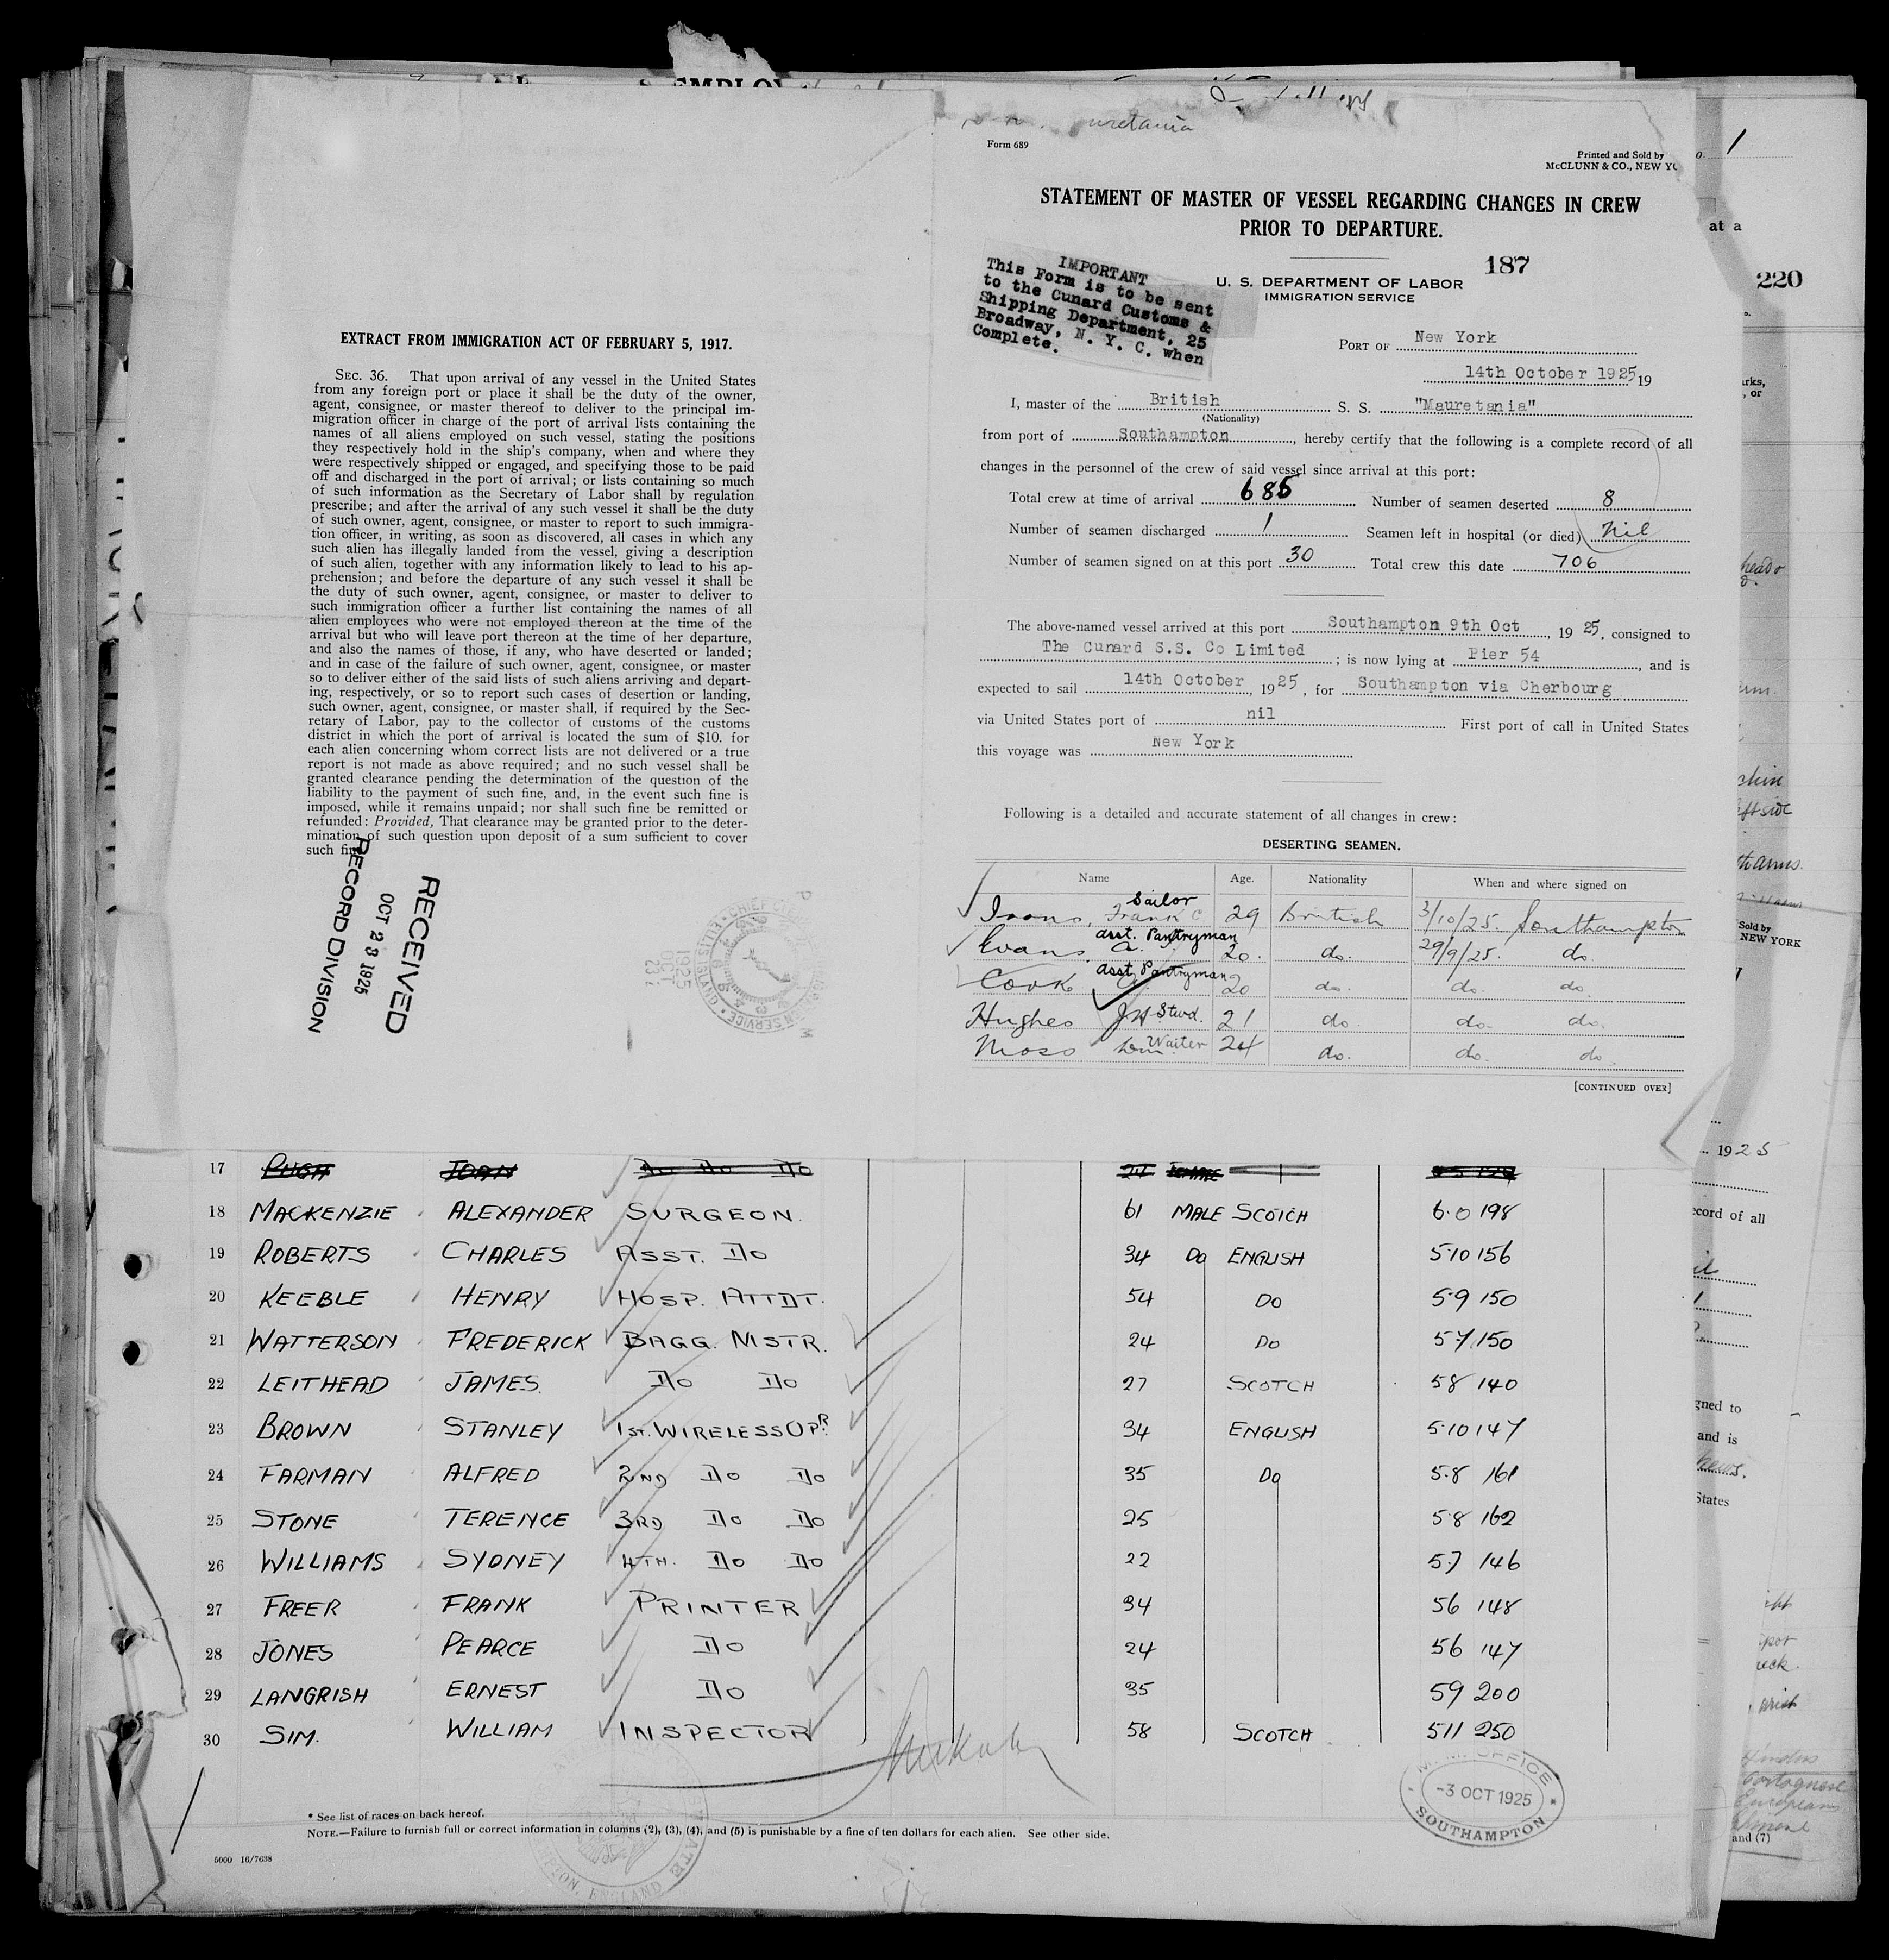 EXTRACT FROM IMMIGRATION ACT OF FEBRUARY 5, 1917.
SEC. 36. That upon arrival of any vessel in the United States
from any foreign port or place it shall be the duty of the owner,
agent, consignee, or master thereof to deliver to the principal im-
migration officer in charge of the port of arrival lists containing the
names of all aliens employed on such vessel, stating the positions
they respectively hold in the ship's company, when and where they
were respectively shipped or engaged, and specifying those to be paid
off and discharged in the port of arrival; or lists containing so much
of such information as the Secretary of Labor shall by regulation
prescribe; and after the arrival of any such vessel it shall be the duty
of such owner, agent, consignee, or master to report to such immigra-
tion officer, in writing, as soon as discovered, all cases in which any
such alien has illegally landed from the vessel, giving a description
of such alien, together with any information likely to lead to his ap-
prehension; and before the departure of any such vessel it shall be
the duty of such owner, agent, consignee, or master to deliver to
such immigration officer a further list containing the names of all
alien employees who were not employed thereon at the time of the
arrival but who will leave port thereon at the time of her departure,
and also the names of those, if any, who have deserted or landed;
and in case of the failure of such owner, agent, consignee, or master
so to deliver either of the said lists of such aliens arriving and depart-
ing, respectively, or so to report such cases of desertion or landing,
such owner, agent, consignee, or master shall, if required by the Sec-
retary of Labor, pay to the collector of customs of the customs
district in which the port of arrival is located the sum of $10. for
each alien concerning whom correct lists are not delivered or a true
report is not made as above required; and no such vessel shall be
granted clearance pending the determination of the question of the
liability to the payment of such fine, and, in the event such fine is
imposed, while it remains unpaid; nor shall such fine be remitted or
refunded: Provided, That clearance may be granted prior to the deter-
mination of such question upon deposit of a sum sufficient to cover
such
RECEIVED
OCT 23 1925
RECORD DIVISION
Form 689
Printed and Sold by
McCLUNN & CO., NEW
STATEMENT OF MASTER OF VESSEL REGARDING CHANGES IN CREW
PRIOR TO DEPARTURE.
187
U. S. DEPARTMENT OF LABOR
IMMIGRATION SERVICE
IMPORTANT
This Form is to be sent
to the Cunard Customs &
Shipping Department, 25
Broadway, N. Y. C. when
Complete.
PORT OF New York
14th October 1925 19
I, master of the British S. S. "Mauretania"
(Nationality)
from port of Southampton, hereby certify that the following is a complete record of all
changes in the personnel of the crew of said vessel since arrival at this port:
Total crew at time of arrival 685 Number of seamen deserted 8
Number of seamen discharged 1 Seamen left in hospital (or died) Nil
Number of seamen signed on at this port 30 Total crew this date 706
The above-named vessel arrived at this port Southampton 9th Oct, 1925, consigned to
The Cunard S.S. Co Limited; is now lying at Pier 54, and is
expected to sail 14th October, 1925, for Southampton via Cherbourg
via United States port of nil First port of call in United States
this voyage was New York
Following is a detailed and accurate statement of all changes in crew:
DESERTING SEAMEN.
Name Age. Nationality When and where signed on
Sailor
Frank C 29 British 3/10/25. Southampton
asst. Pantryman
Evans A. 20. do. 29/9/25. do.
asst Pantryman
Cook 20 do. do. do.
Hughes Stwd. 21 do. do. do.
Moss Waiter 24 do. do. do.
[CONTINUED OVER]
17 PUGH JOAN DO DO DO
18 MACKENZIE ALEXANDER SURGEON. 61 MALE SCOTCH 6.0 198
19 ROBERTS CHARLES ASST. DO 34 DO ENGLISH 5.10 156
20 KEEBLE HENRY HOSP. ATTDT. 54 DO 5.9 150
21 WATTERSON FREDERICK BAGG. MSTR. 24 DO 5.7 150
22 LEITHEAD JAMES DO DO 27 SCOTCH 5.8 140
23 BROWN STANLEY 1ST. WIRELESS OPR. 34 ENGLISH 5.10 147
24 FARMAN ALFRED 2ND DO DO 35 DO 5.8 161
25 STONE TERENCE 3RD DO DO 25 5.8 162
26 WILLIAMS SYDNEY 4TH. DO DO 22 5.7 146
27 FREER FRANK PRINTER 34 56 148
28 JONES PEARCE DO 24 56 147
29 LANGRISH ERNEST DO 35 59 200
30 SIM. WILLIAM INSPECTOR 58 SCOTCH 511 250
OFFICE
-3 OCT 1925
SOUTHAMPTON
* See list of races on back hereof.
NOTE.—Failure to furnish full or correct information in columns (2), (3), (4), and (5) is punishable by a fine of ten dollars for each alien. See other side.
5000 16/7638
1
at a
220
Sold by
NEW YORK
1925
record of all
and is
States
and (7)